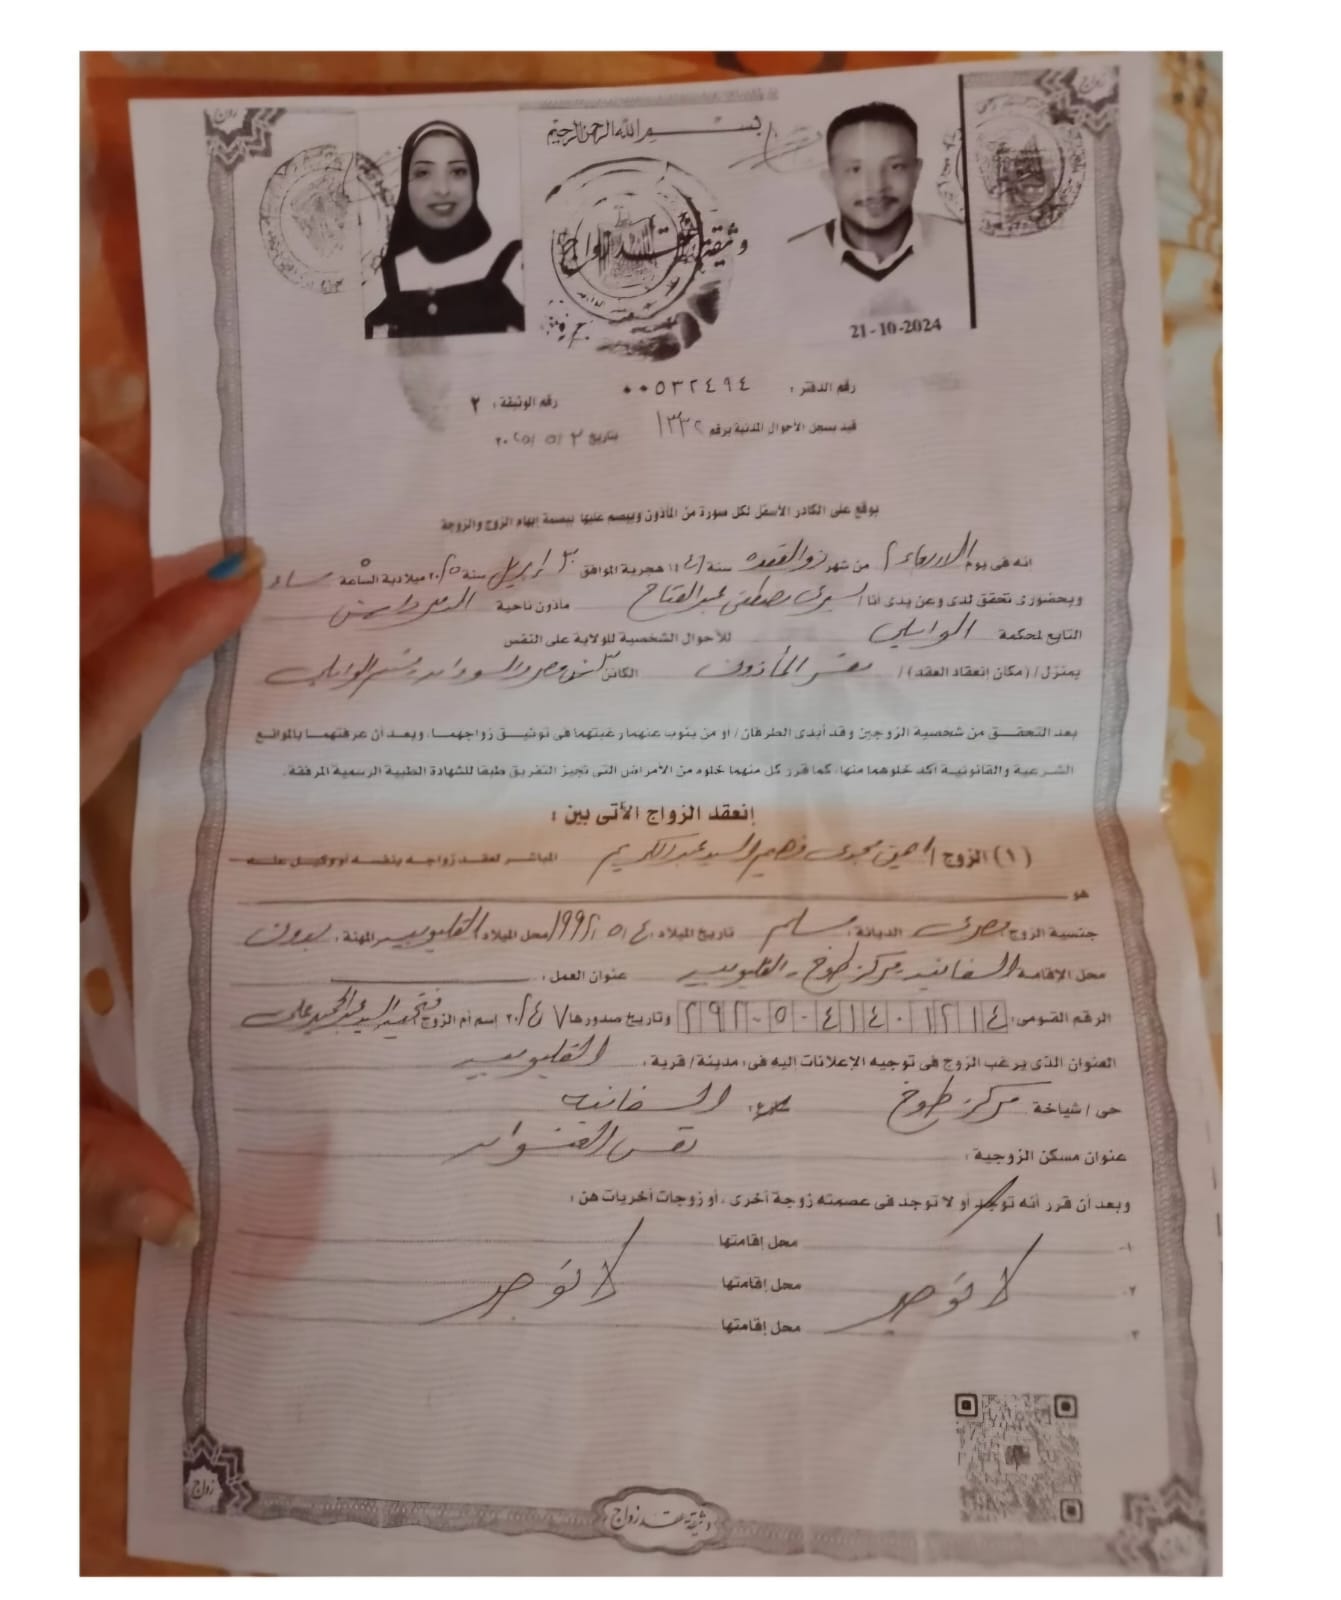 زواج
بسم الله الرحمن الرحيم
زواج
وثيقة عقد زواج
21-10-2024
رقم الدفتر : ٠٠٥٣٢٤٩٤
رقم الوثيقة : ٢
قيد بسجل الأحوال المدنية برقم ١٣٣٢ بتاريخ ٣ / ٥ / ٢٠٢٥
يوقع على الكادر الأسفل لكل صورة من المأذون ويبصم عليها ببصمة إبهام الزوج والزوجة
انه فى يوم الاربعاء ٢ من شهر ذو القعده سنة ١٤٤٦ هجرية الموافق ٣٠ ابريل سنة ٢٠٢٥ ميلادية الساعة ٥ مساء
وبحضورى تحقق لدى وعن يدى أنا / يسرى مصطفى عبد الفتاح مأذون ناحية
التابع لمحكمة الوايلى للأحوال الشخصية للولاية على النفس
بمنزل / (مكان إنعقاد العقد) / مقر المأذون الكائن ش مصر والسودان قسم الوايلى
بعد التحقق من شخصية الزوجين وقد أبدى الطرفان / أو من ينوب عنهما رغبتهما فى توثيق زواجهما، وبعد أن عرفتهما بالموانع
الشرعية والقانونية أكد خلوهما منها، كما قرر كل منهما خلوه من الأمراض التى تجيز التفريق طبقا للشهادة الطبية الرسمية المرفقة.
إنعقد الزواج الأتى بين :
(١) الزوج / مجدى فهيم السيد عبد الكريم المباشر لعقد زواجه بنفسه أو وكيل عنه
هو
جنسية الزوج : مصرى الديانة : مسلم تاريخ الميلاد : ٤ / ٥ / ١٩٩٢ محل الميلاد : القليوبيه المهنة : بدون
محل الإقامة السفانيه - مركز طوخ - القليوبيه عنوان العمل :
الرقم القومى : ٢٩٢٠٥٠٤١٤٠١٢١٤ وتاريخ صدورها ٧ / ٢٠٢٤ إسم أم الزوج : فتحيه السيد عبد الحميد على
العنوان الذى يرغب الزوج فى توجيه الإعلانات إليه فى : مدينة / قرية : القليوبيه
حى / شياخة مركز طوخ السفانيه
عنوان مسكن الزوجية : نفس العنوان
وبعد أن قرر أنه توجد أو لا توجد فى عصمته زوجة أخرى ، أو زوجات أخريات هن :
١- محل إقامتها
لا توجد لا توجد
٢- محل إقامتها
٣- محل إقامتها
زواج
وثيقة عقد زواج